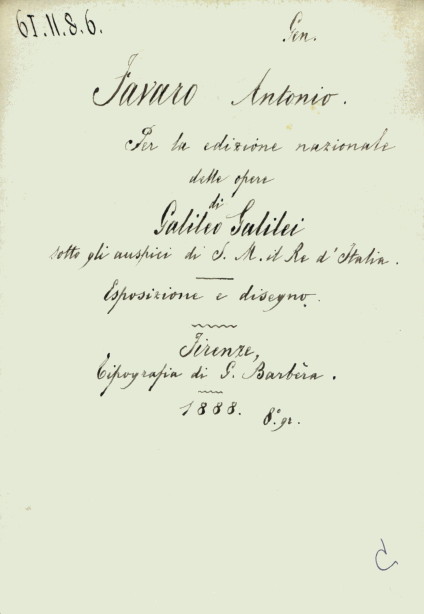 61.11.8.6.
Gen.
Favaro Antonio.
Per la edizione nazionale
delle opere
di
Galileo Galilei
sotto gli auspici di S. M. il Re d'Italia.
Esposizione e disegno.
Firenze,
Tipografia di G. Barbèra.
1888. 8.° gr.